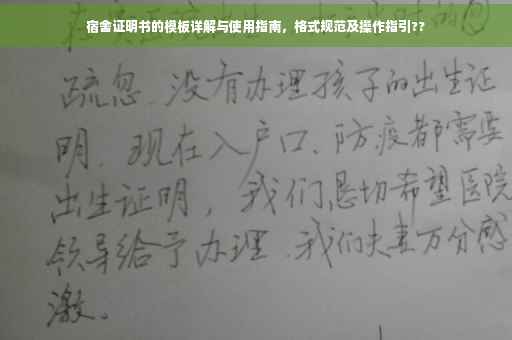 宿舍证明书的模板详解与使用指南，格式规范及操作指引??
疏忽、没有办理孩子的出生证
明、现在入户口、防疫都需要
出生证明，我们恳切希望医院
领导给予办理、我们夫妻万分感
激。